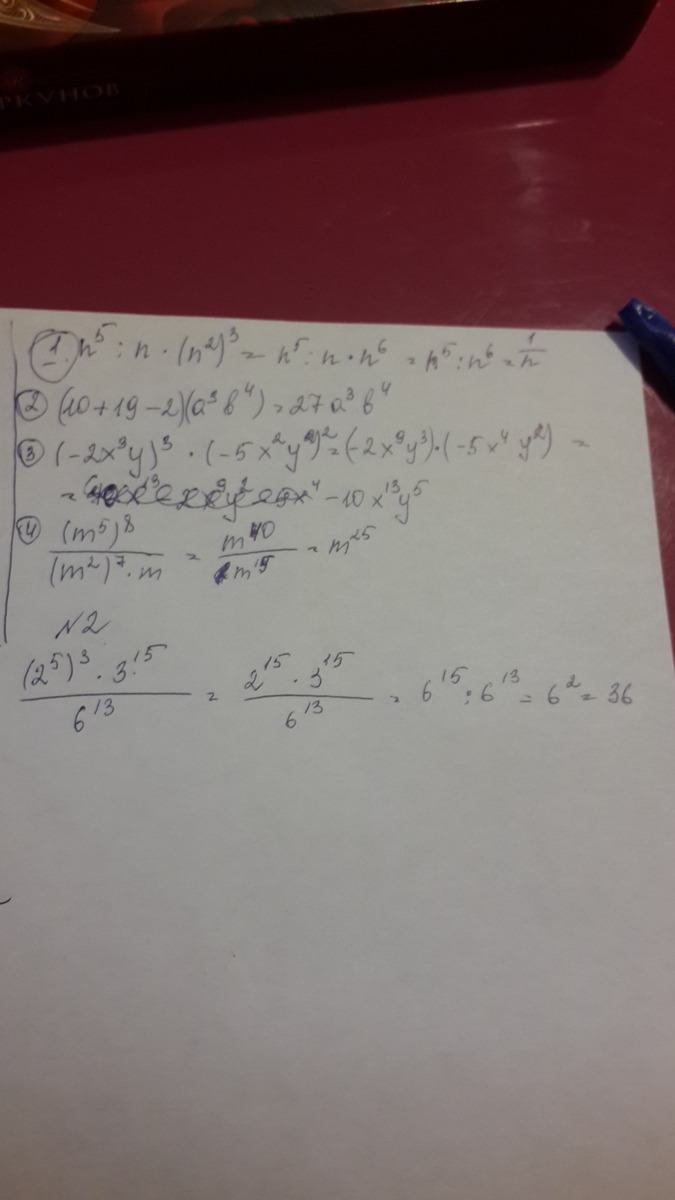 РКУНОВ
1. n⁵ : n · (n²)³ = n⁵ : n · n⁶ = n⁵ : n⁶ = 1/n
2 (10+19-2)(a³b⁴) = 27a³b⁴
3 (-2x³y)³ · (-5x²y)² = (-2x⁹y³)·(-5x⁴y²) =
= -10x¹³y⁵
4 (m⁵)⁸ / (m²)⁷·m = m⁴⁰ / m¹⁵ = m²⁵
N2
(2⁵)³ · 3¹⁵ / 6¹³ = 2¹⁵ · 3¹⁵ / 6¹³ = 6¹⁵ : 6¹³ = 6² = 36